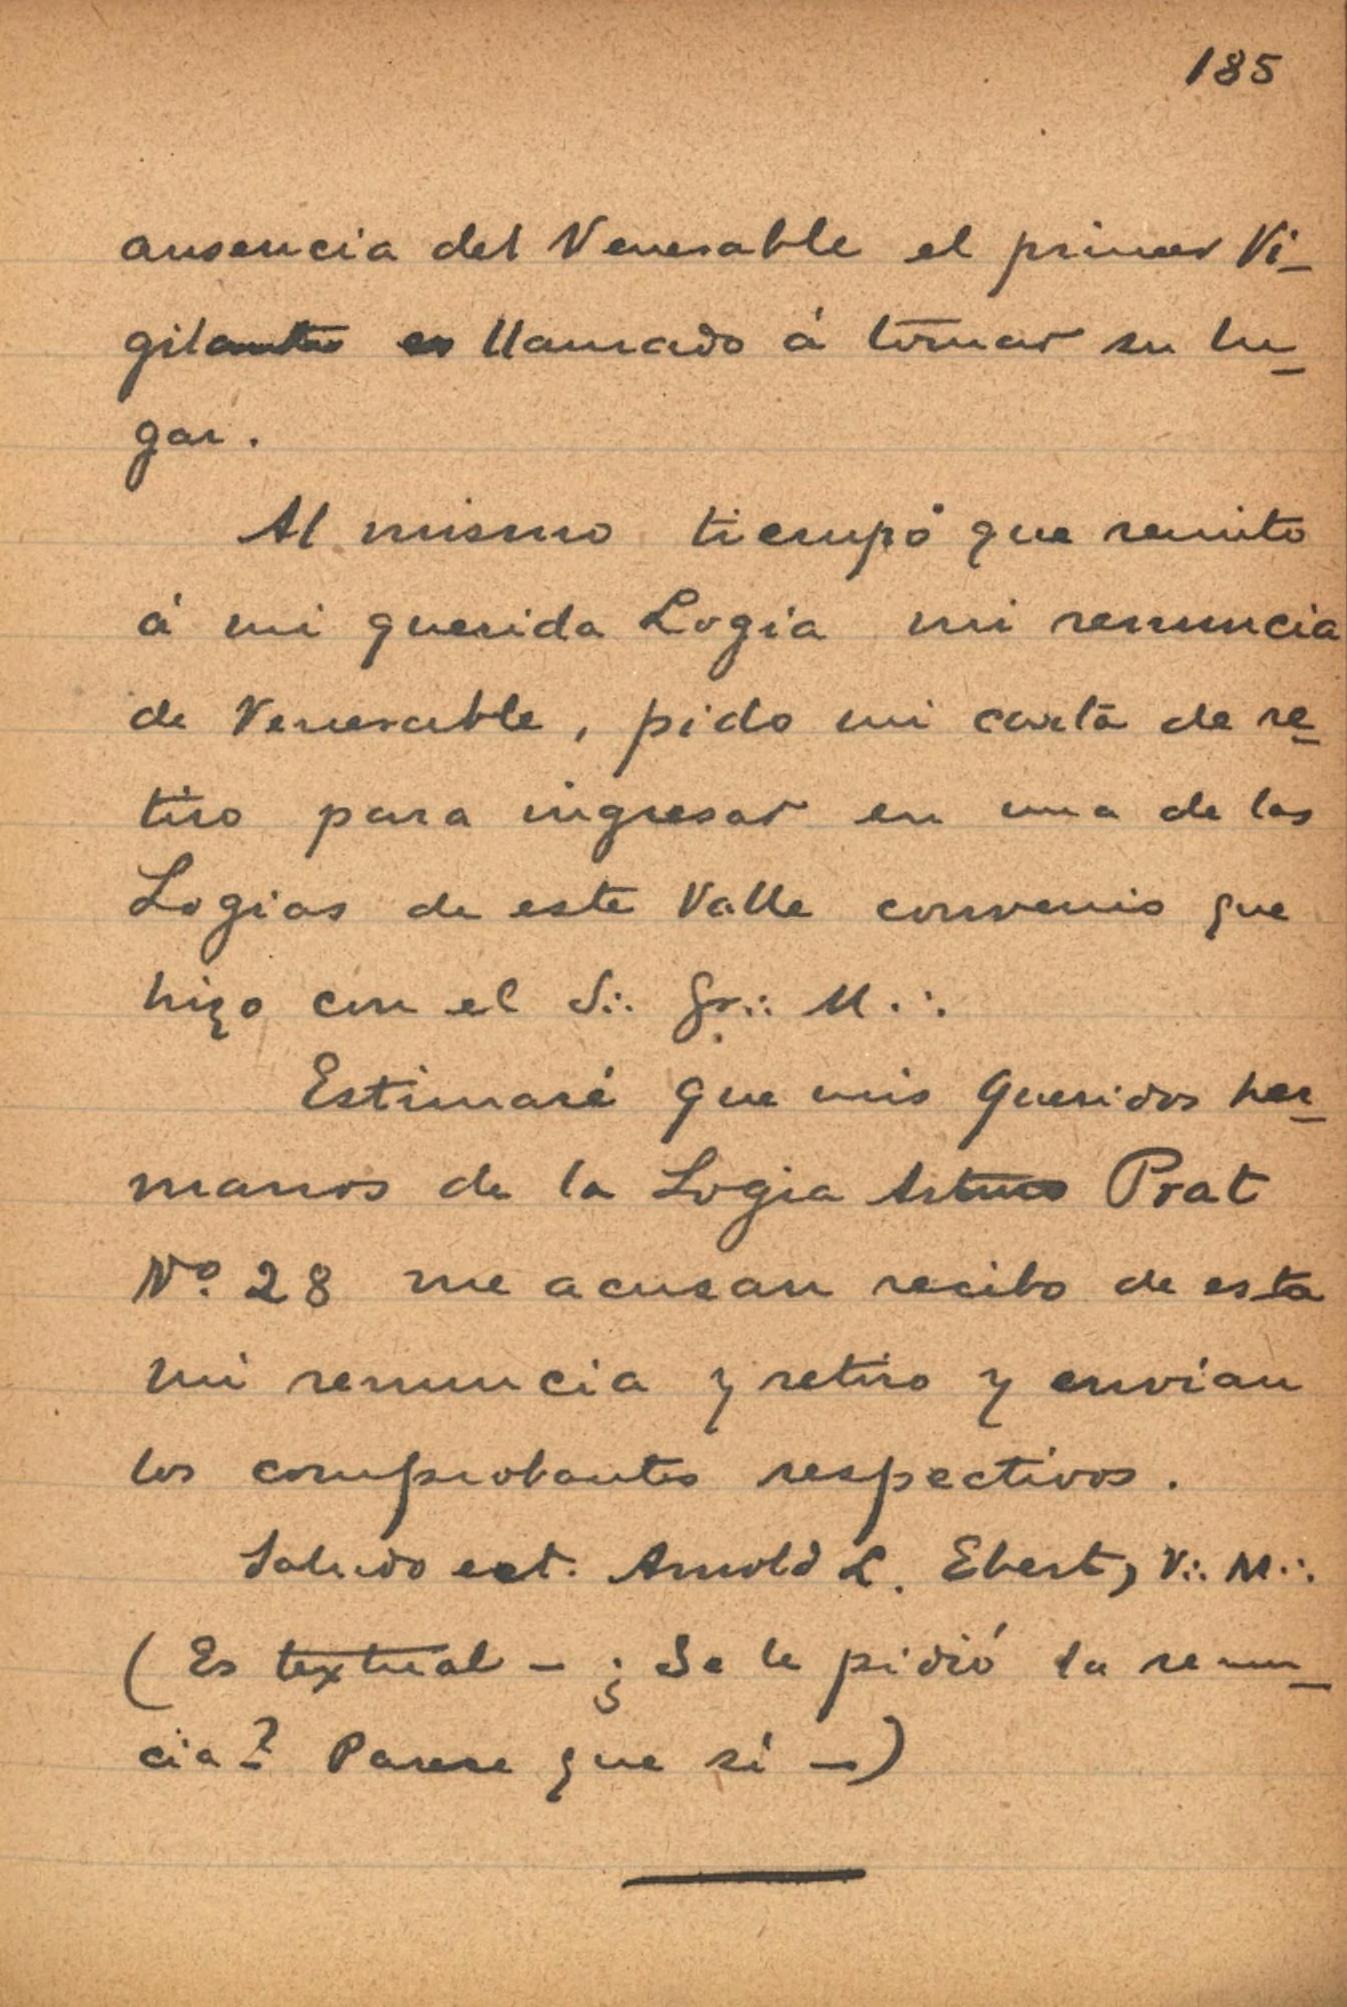 185
ausencia del Venerable el primer Vi-
gilante es llamado á tomar su lu-
gar.
Al mismo tiempo que remito
á mi querida Logia mi renuncia
de Venerable, pido mi carta de re-
tiro para ingresar en una de las
Logias de este Valle convenio que
hizo con el S∴ Gr∴ M∴
Estimaré que mis queridos her-
manos de la Logia Arturo Prat
Nº. 28 me acusan recibo de esta
mi renuncia y retiro y envían
los comprobantes respectivos.
Saludo ect. Arnold L. Ebert, V∴ M∴
(Es textual - ¿Se le pidió la renun-
cia? Parece que sí -)